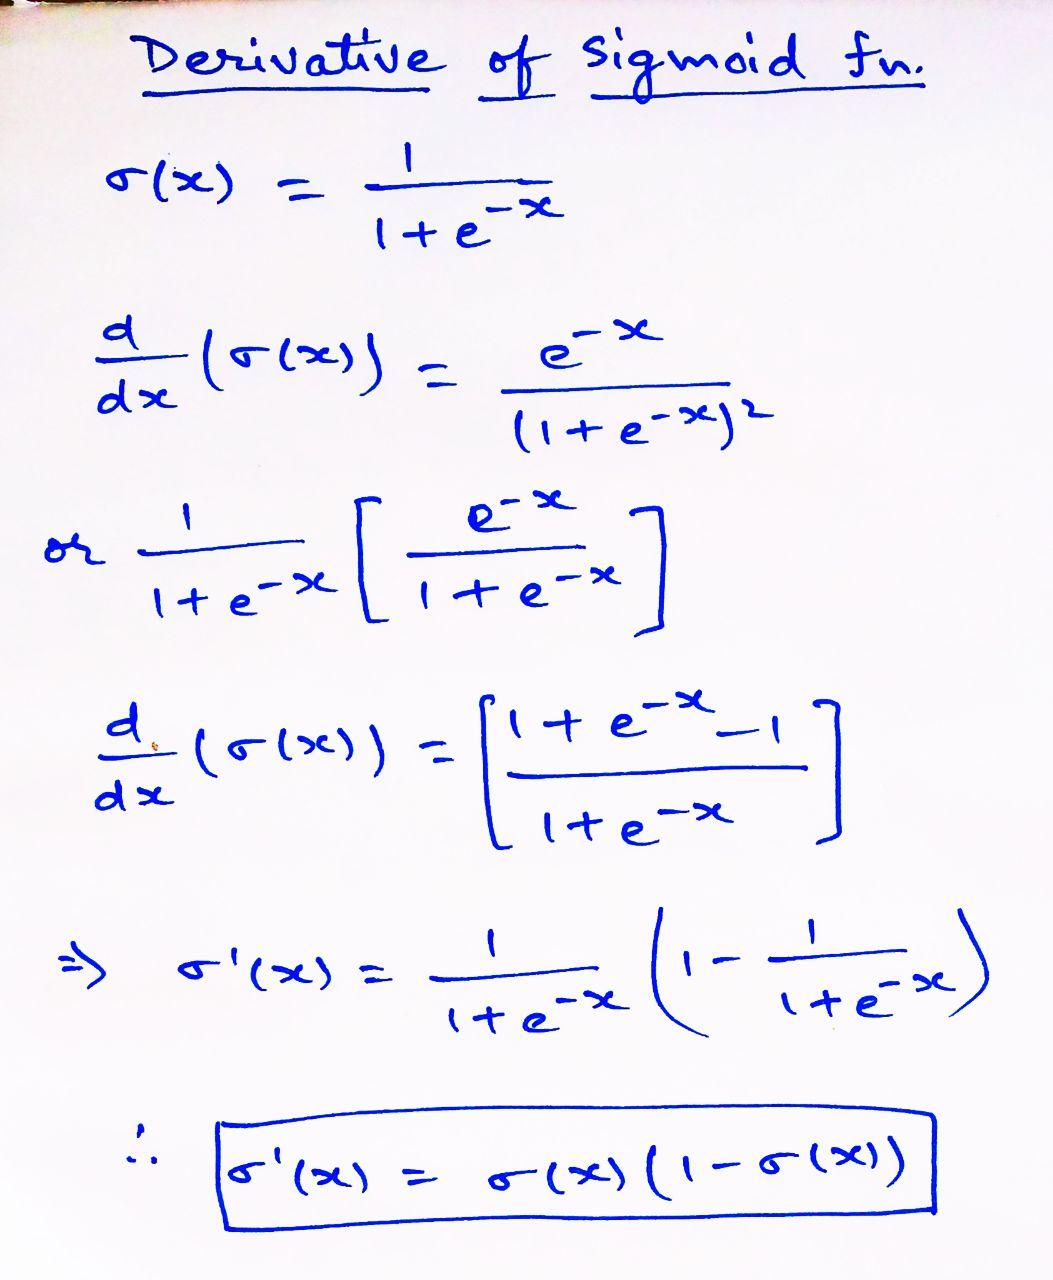 Derivative of sigmoid fn.
σ(x) = 1/(1+e^-x)
d/dx (σ(x)) = e^-x/(1+e^-x)^2
or 1/(1+e^-x) [e^-x/(1+e^-x)]
d/dx (σ(x)) = [(1+e^-x-1)/(1+e^-x)]
⇒ σ'(x) = 1/(1+e^-x) (1 - 1/(1+e^-x))
∴ σ'(x) = σ(x)(1-σ(x))